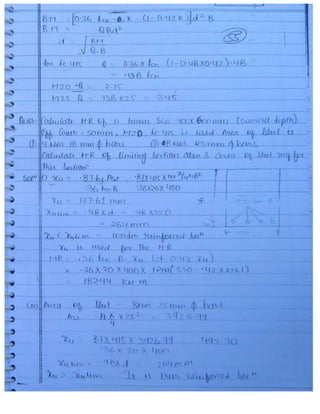 BM = 0.36 fck · K · (1-0.42K) d² B
BM = QBd²
d = √BM / Q.B
(55)
for fe 415 Q = 0.36 × fck (1-0.48×0.42)·48
= ·138 fck
M20 Q = 2.75
M25 Q = ·138 × 25 = 3.45
Ques- Calculate MR of a beam Size 400 × 600 mm (overall depth)
Eff. Cover - 50mm, M20, fe 415 is used. Area of Steel is
① 4 Nos 18 mm ϕ bars ② 8 Nos 25 mm ϕ bars
Calculate MR of limiting Section also & area of steel req for
this section
Solⁿ i) xu = ·87 fy Ast
·36 fck B
·36×20×400
xu = 127.61 mm
xulim = ·48 × d = ·48 × 550
= 264 mm
xu < xulim - Under reinforced Secⁿ
∴ xu is used for the MR
MR = ·36 fck B. xu (d - 0.42 xu)
= ·36 × 20 × 400 × 127.61 (550 - ·42 × 127.61)
= 182.44 kN m
(ii) Area of Steel - 8Nos 25 mm ϕ bars
Ast = × 25² = 3926.99
xu = ·87 × 415 × 3926.99 = 492.30
·36 × 20 × 400
xulim = ·48 d = 264 mm
xu > xulim It is over reinforced Secⁿ